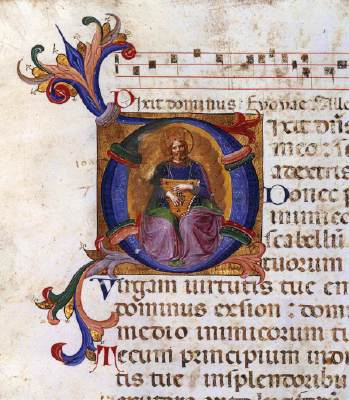 Dixit dominus: Evovae Alle
ixit dn̄s
meo:
a dextris
Donec p
inimico
scabellū
tuorum
Virgam uirtutis tue em
dominus exsion: domi
medio inimicorum tu
Tecum principium in di
tis tue insplendoribus